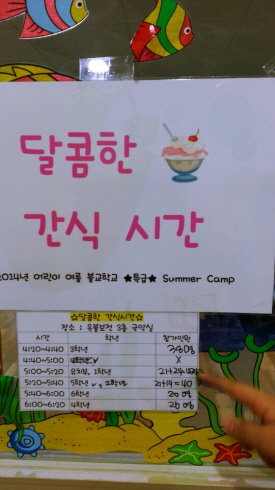 달콤한
간식 시간
2014년 어린이 여름 불교학교 ★특급★ Summer Camp
☆달콤한 간식시간☆
장소 : 유물보전 3층 공양실
시간 학년 참가인원
4:20~4:40 3학년
4:40~5:00 X
5:00~5:20 유치원, 1학년
5:20~5:40 5학년, 2학년 21+19=40
5:40~6:00 6학년 20명
6:00~6:20 4학년